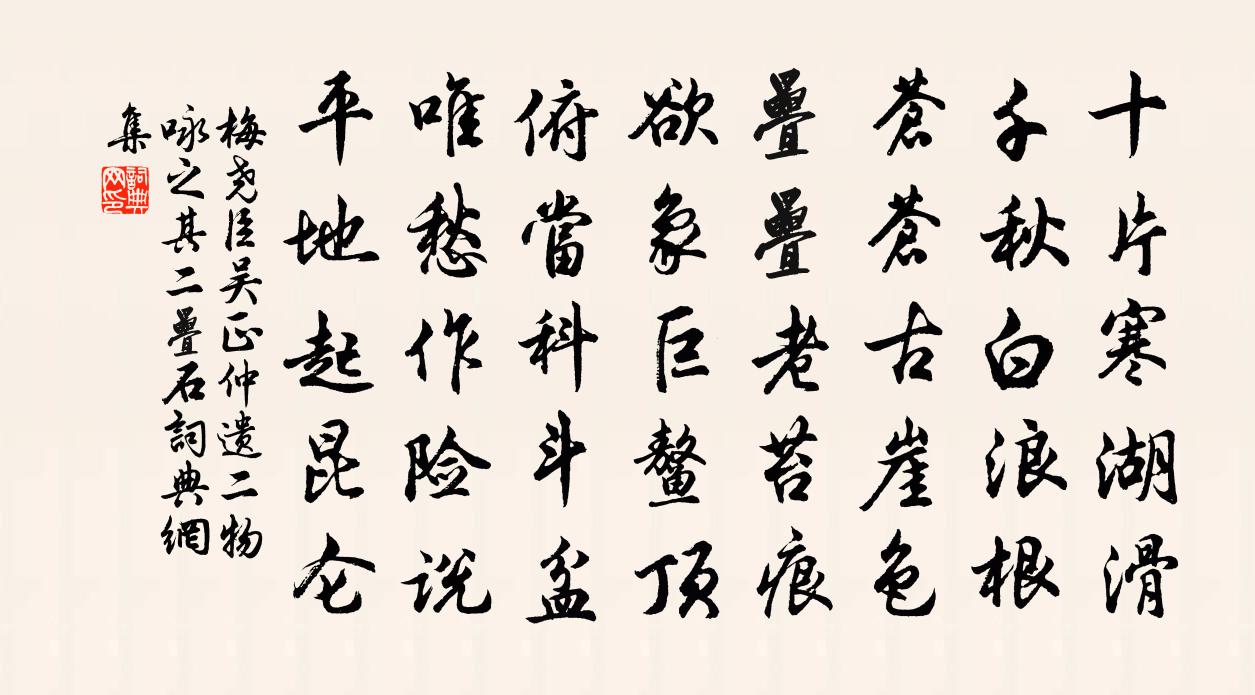 十片寒湖滑
千秋白浪根
蒼蒼古崖色
疊疊老苔痕
欲象巨鳌顶
俯當科斗盆
唯愁作险说
平地起昆仑
梅尧臣吴正仲遗二物
咏之其二疊石詞典網
集
詞典網印